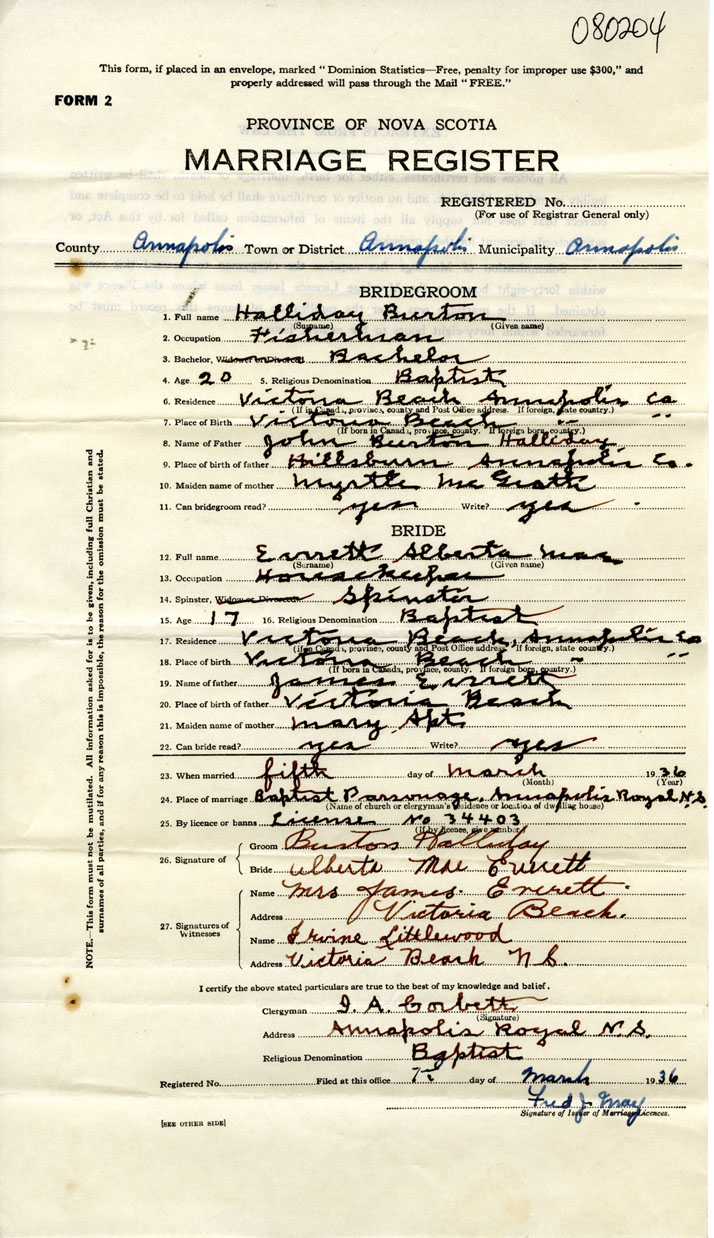 080204
This form, if placed in an envelope, marked "Dominion Statistics—Free, penalty for improper use $300," and
properly addressed will pass through the Mail "FREE."
FORM 2
PROVINCE OF NOVA SCOTIA
MARRIAGE REGISTER
REGISTERED No.
(For use of Registrar General only)
County Annapolis Town or District Annapolis Municipality Annapolis
BRIDEGROOM
1. Full name Halliday Burton
(Surname) (Given name)
2. Occupation Fisherman
3. Bachelor, Widower or Divorced Bachelor
4. Age 20 5. Religious Denomination Baptist
6. Residence Victoria Beach Annapolis Co
(If in Canada, province, county and Post Office address. If foreign, state country.)
7. Place of Birth Victoria Beach " "
(If born in Canada, province, county. If foreign born, country.)
8. Name of Father John Burton Halliday
9. Place of birth of father Hillsburn Annapolis Co.
10. Maiden name of mother Myrtle McGrath
11. Can bridegroom read? yes Write? yes
BRIDE
12. Full name Everett Alberta Mae
(Surname) (Given name)
13. Occupation Housekeeper
14. Spinster, Widow or Divorced Spinster
15. Age 17 16. Religious Denomination Baptist
17. Residence Victoria Beach, Annapolis Co
(If in Canada, province, county and Post Office address. If foreign, state country.)
18. Place of birth Victoria Beach " "
(If born in Canada, province, county. If foreign born, country.)
19. Name of father James Everett
20. Place of birth of father Victoria Beach
21. Maiden name of mother Mary Apt
22. Can bride read? yes Write? yes
23. When married fifth day of March 1936
(Month) (Year)
24. Place of marriage Baptist Parsonage, Annapolis Royal N.S.
(Name of church or clergyman's residence or location of dwelling house)
25. By licence or banns License No 34403
(If by licence, give number)
26. Signature of
Groom Burton Halliday
Bride Alberta Mae Everett
27. Signatures of Witnesses
Name Mrs James Everett
Address Victoria Beach.
Name Irvine Littlewood
Address Victoria Beach N.S.
I certify the above stated particulars are true to the best of my knowledge and belief.
Clergyman I. A. Corbett
(Signature)
Address Annapolis Royal N.S.
Religious Denomination Baptist
Registered No. Filed at this office 7th day of March 1936
Fred J. May
Signature of Issuer of Marriage Licences.
[SEE OTHER SIDE]
NOTE.—This form must not be mutilated. All information asked for is to be given, including full Christian and
surnames of all parties, and if for any reason this is impossible, the reason for the omission must be stated.